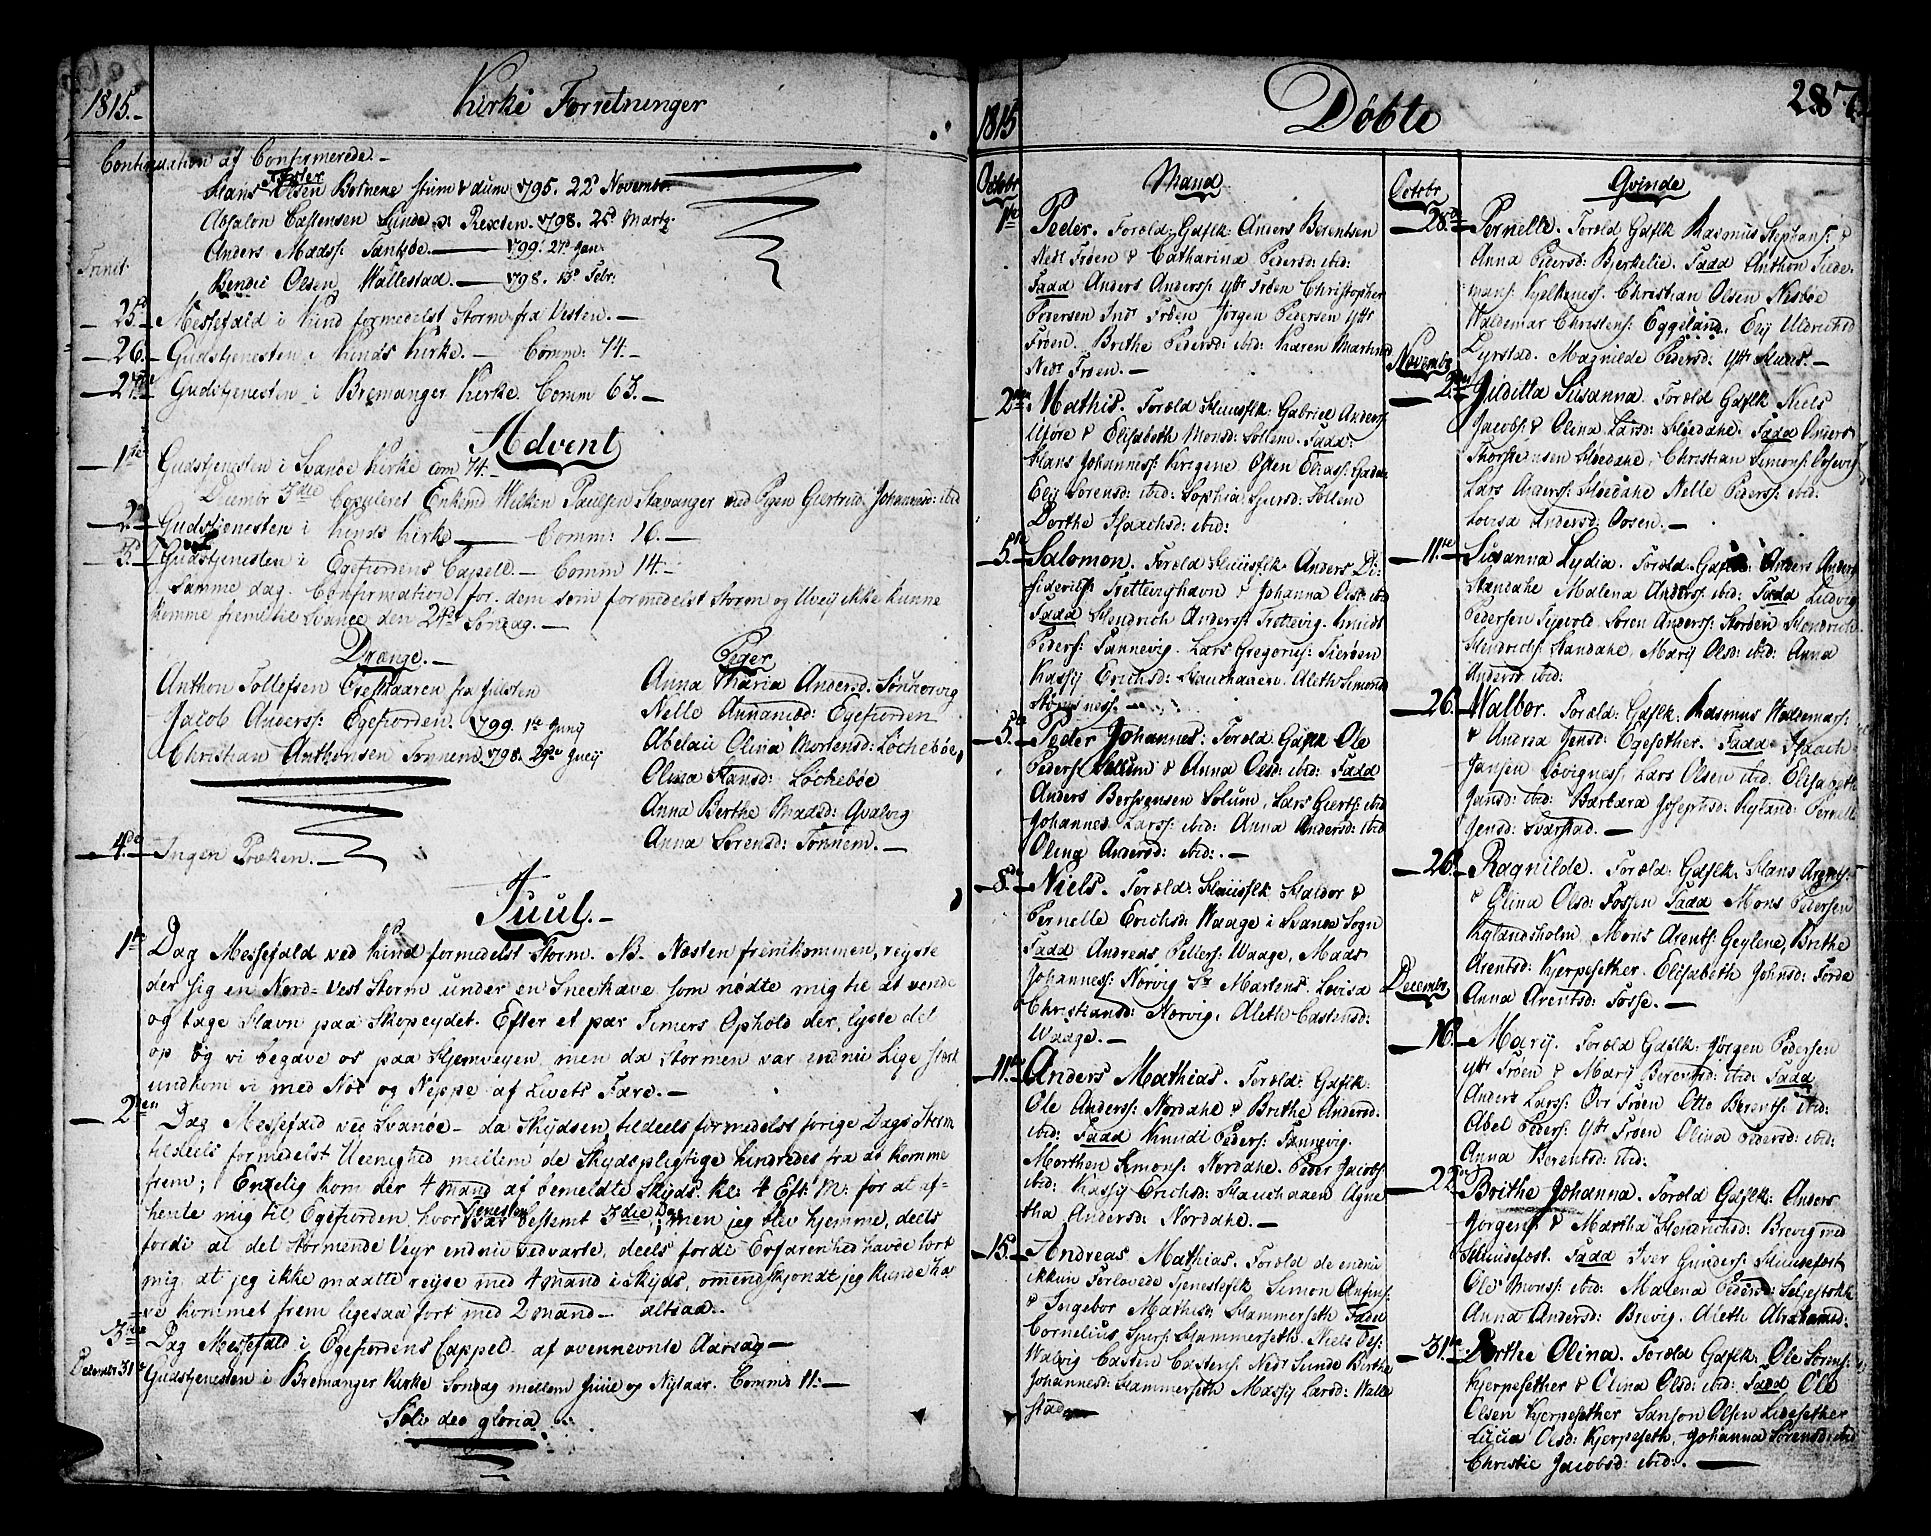 1815.
Kirke Forretninger
Continuation af Confirmerede.
Peder
Hans Olsen Botnene stum & dum 1795. 22d Novembr.
Absalon Castensen Sunde v Rexten. 1798. 25d Marty
Anders Madss: Sankøe. 1799. 27d Jan:
Bendic Olsen Wallestad. 1798. 13d Febr:
Trinit:
25d Messefald i Kind formedelst Storm fra Vesten.
26. Gudstjenesten i Kinds Kirke. Comm: 74.
27de Gudstjenesten i Bremanger Kirke. Comm 63.
Advent
1ste Gudstjenesten i Svanøe Kirke com 74.
Decembr 3die Copuleret Enkem Welken Paulsen Stavanger med Pigen Giertrud Johannesd: ibid
2d Gudstjenesten i Kinds Kirke Comm: 16.
3d Gudstjenesten i Egefiordens Capell. Comm 14.
Samme dag. Confirmation for dem som formedelst Storm og Uveij ikke kunne
komme frem til Svanøe den 24d Søndag.
Drænge.
Anthon Tollefsen fra Julsten
Jacob Anderss: Egefiorden. 1799. 1ste Juny
Christian Anthonsen Tonnem 1798. 29de Juny
Piger
Anna Maria Andersd: Sønhovvig
Nelle Annanied: Egefiorden
Abelaii Olina Mortensd: Løchebøe
Olina Hansd: Løchebøe
Anna Berthe Madsd: Qvalvig
Anna Sørensd: Tonnem.
4de Ingen Præken.
Juul.
1ste Dag Messefald ved Kind formedelst Storm. NB. Næsten fremkommen, reyste
der sig en Nord-Vest Storm under en Sneekave som nødte mig til at vende
og tage Havn paa Skopeydet. Efter et par Timers Ophold der, lyste det
op og vi begave os paa Hjemveyen, men da Stormen var endnu lige stærk
undkom vi med Nød og Neppe af Livets Fare.
2den Dag Messefald ved Svanøe da Skydsen tildeels formedelst forige Dags Storm
tildeels formedelst Ueenighed mellem de Skydspligtige hindredes fra at komme
frem; Endelig kom der 4 Mand af bemeldte Skyds. kl: 4 Eft: M: for at af-
hente mig til Egefiorden, hvor Tjenesten var bestemt 3die Dag; men jeg blev hjemme, deels
fordi at det Stormende Veyr endnu vedvarte, deels fordi Erfarenhed havde lært
mig at jeg ikke maatte reyse med 4 Mand i Skyds, omendskjøndt jeg kunde ha-
ve kommet frem ligesaa fort med 2 Mand altsaa.
3die Dag Messefald i Egefiordens Cappel af ovennevnte Aarsag
Decembr 31te Gudstjenesten i Bremanger Kirke Søndag mellem Juul og Nytaar. Comm: 11.
Soli deo gloria
1815
Døbte
287.
Octobr
Mand
1ste Peder. Foræld: Gdflk Anders Berentsen
Nedr Frøen & Catharina Pedersd: ibid:
Fadd Anders Anderss: ytr Frøen Christopher
Petersen Indr Frøen Jørgen Pedersen yttr
Frøen. Brithe Pedersd: ibid: Karen Martind
Nedr Frøen.
2den Mathis. Foræld Huusflk: Gabriel Anders
Uføre & Elisabeth Monsd: Sollem. Fadd:
Hans Johanness: Kregene Osten Eliass:
Elij Sorensd: ibid: Sophia Sjursd: Follem
Dorthe Isaachsd: ibid:
5te Salomon. Foræld Huusflk Anders Di-
Trettevighavn & Johanna Olsd: ibid
Fadd Hendrich Anderss: Trettevig. Knudt
Peders: Tannevig. Lars Gregorius: Tierøen
Kassij Erichsd: Hauchaaen. Aleth Simonsd
5te Peder Johannes. Foræld Gdflk Ole
Peders Sollum & Anna Olsd: ibid: Fadd
Anders Berhsensen Solum, Lars Gierts: ibid
Johannes Larss: ibid: Anna Andersd: ibid
Olina Andersd: ibid:.
8de Niels. Foræld: Huusflk Haldor &
Pernelle Erichsd: Waage i Svanøe Sogn
Fadd Andreas Pellers: Waage, Mads
Johanness: Norvig Martens: Lovisa
Christiansd: Norvig. Aleth Castensd:
Waage.
11te Anders Mathias. Foræld: Gdflk:
Ole Anderss: Nordahe & Brithe Andersd:
ibid: Fadd Knudt Peders: Tannevig.
Morthen Simons: Nordahe. Peder Jacobs:
ibid: Kassij Erichsd: Hauchaaen Agne
tha Andersd: Nordahe.
15. Andreas Mathias. Foræld de endnu
ikkun Forlovede Tjenestfolk Simon
& Ingebor Mathisd: Hammerseth Fadd
Cornelius Sjurs: Hammerseth. Niels Ols:
Walvig Casten Castens: Nedr Sunde Birthe
Johannesd: Hammerseth Massij Larsd: Walle
stad
Octobr
Qvinde
28de Pernelle. Foræld Gdflk Rasmus Stephans: &
Anna Pedersd: Bjerkelie. Fadd Anthon Tiede-
mans: Kjelkeness. Christian Olsen Nesbøe
Waldemar Christens: Eggeland. Elij Uldrichsd
Lyrstad. Magnilde Pedersd: Ytr Haas.
Novembr
2den Juditta Susanna. Foræld Gdflk Niels
Jacobs: & Olina Larsd: Hoedahe. Fadd Anders
Thorstensen Hoedahe, Christian Simons: Osevig
Lars Anders: Hoedahe Nelle Peders: ibid:
Lovisa Andersd: Oosen.
11te Susanna Lydia. Foræld Gdflk: Anders Anders
Standahe Malena Anders: ibid: Fadd Ludvig
Pedersen Sijvold. Soren Anderss: Storøen Hendrich
Hendrichs: Standahe, Marij Olsd: ibid: Anna
Andersd: ibid:
26. Walbor. Foræld: Gdflk: Rasmus Waldemars:
& Andrea Jensd: Egesether. Fadd Isaach
Jansen Løvignes: Lars Olsen ibid. Elisabeth
Jansd: ibid: Barbara Josephsd: Kyland: Pernelle
Jensd: Sværstad.
26. Ragnilde. Foræld: Gdflk: Hans Arents:
& Olina Olsd: Fossen Fadd Mons Pedersen
Kylandsholm, Mons Arents: Geylene, Brithe
Arentsd: Kjerpesether. Elisabeth Johnsd: Førde
Anna Arentsd: Fosse.
Decembr
16. Marij. Foræld Gdflk: Jørgen Pedersen
yttr Frøen & Marij Berentsd: ibid: Fadd
Anders Larss: Ovr Frøen Otto Berents: ibid:
Abel Peders: ytr Frøen Olina Pedersd: ibid:
Anna Berentsd: ibid:
22de Brithe Johanna. Foræld Gdflk: Anders
Jorgens: & Martha Hendrichsd: Brevig med
Fadd Iver Gunders: Huusefest
Ole Mons: ibid: Malena Pedersd:
Anna Andersd: Brevig. Aleth Abrahamsd:
31te Dorthe Olina. Foræld Gdflk: Ole Sørens:
Kjerpesether & Olina Olsd: ibid: Fadd Ole
Olsen Kjerpesether Sanson Olsen Lidesether
Lucia Olsd: Kjerpeseth, Johanna Sørensd: ibid
Christie Jacobsd: ibid:.